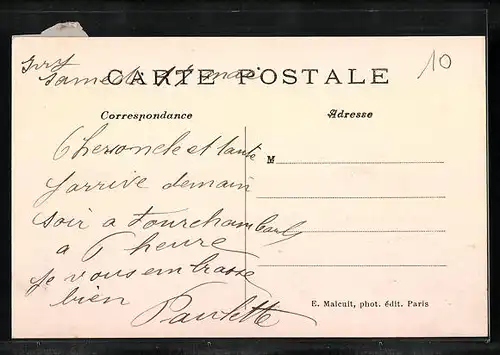 Ivry
Samedi 17 mai
CARTE POSTALE
10
Correspondance
Adresse
Cher oncle et tante
M
J'arrive demain
soir a Fourchambault
a 7 heure
je vous embrasse
bien
Paulette
E. Malcuit, phot. édit. Paris